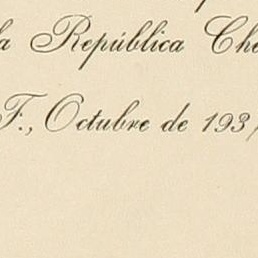 la República Che
F., Octubre de 193